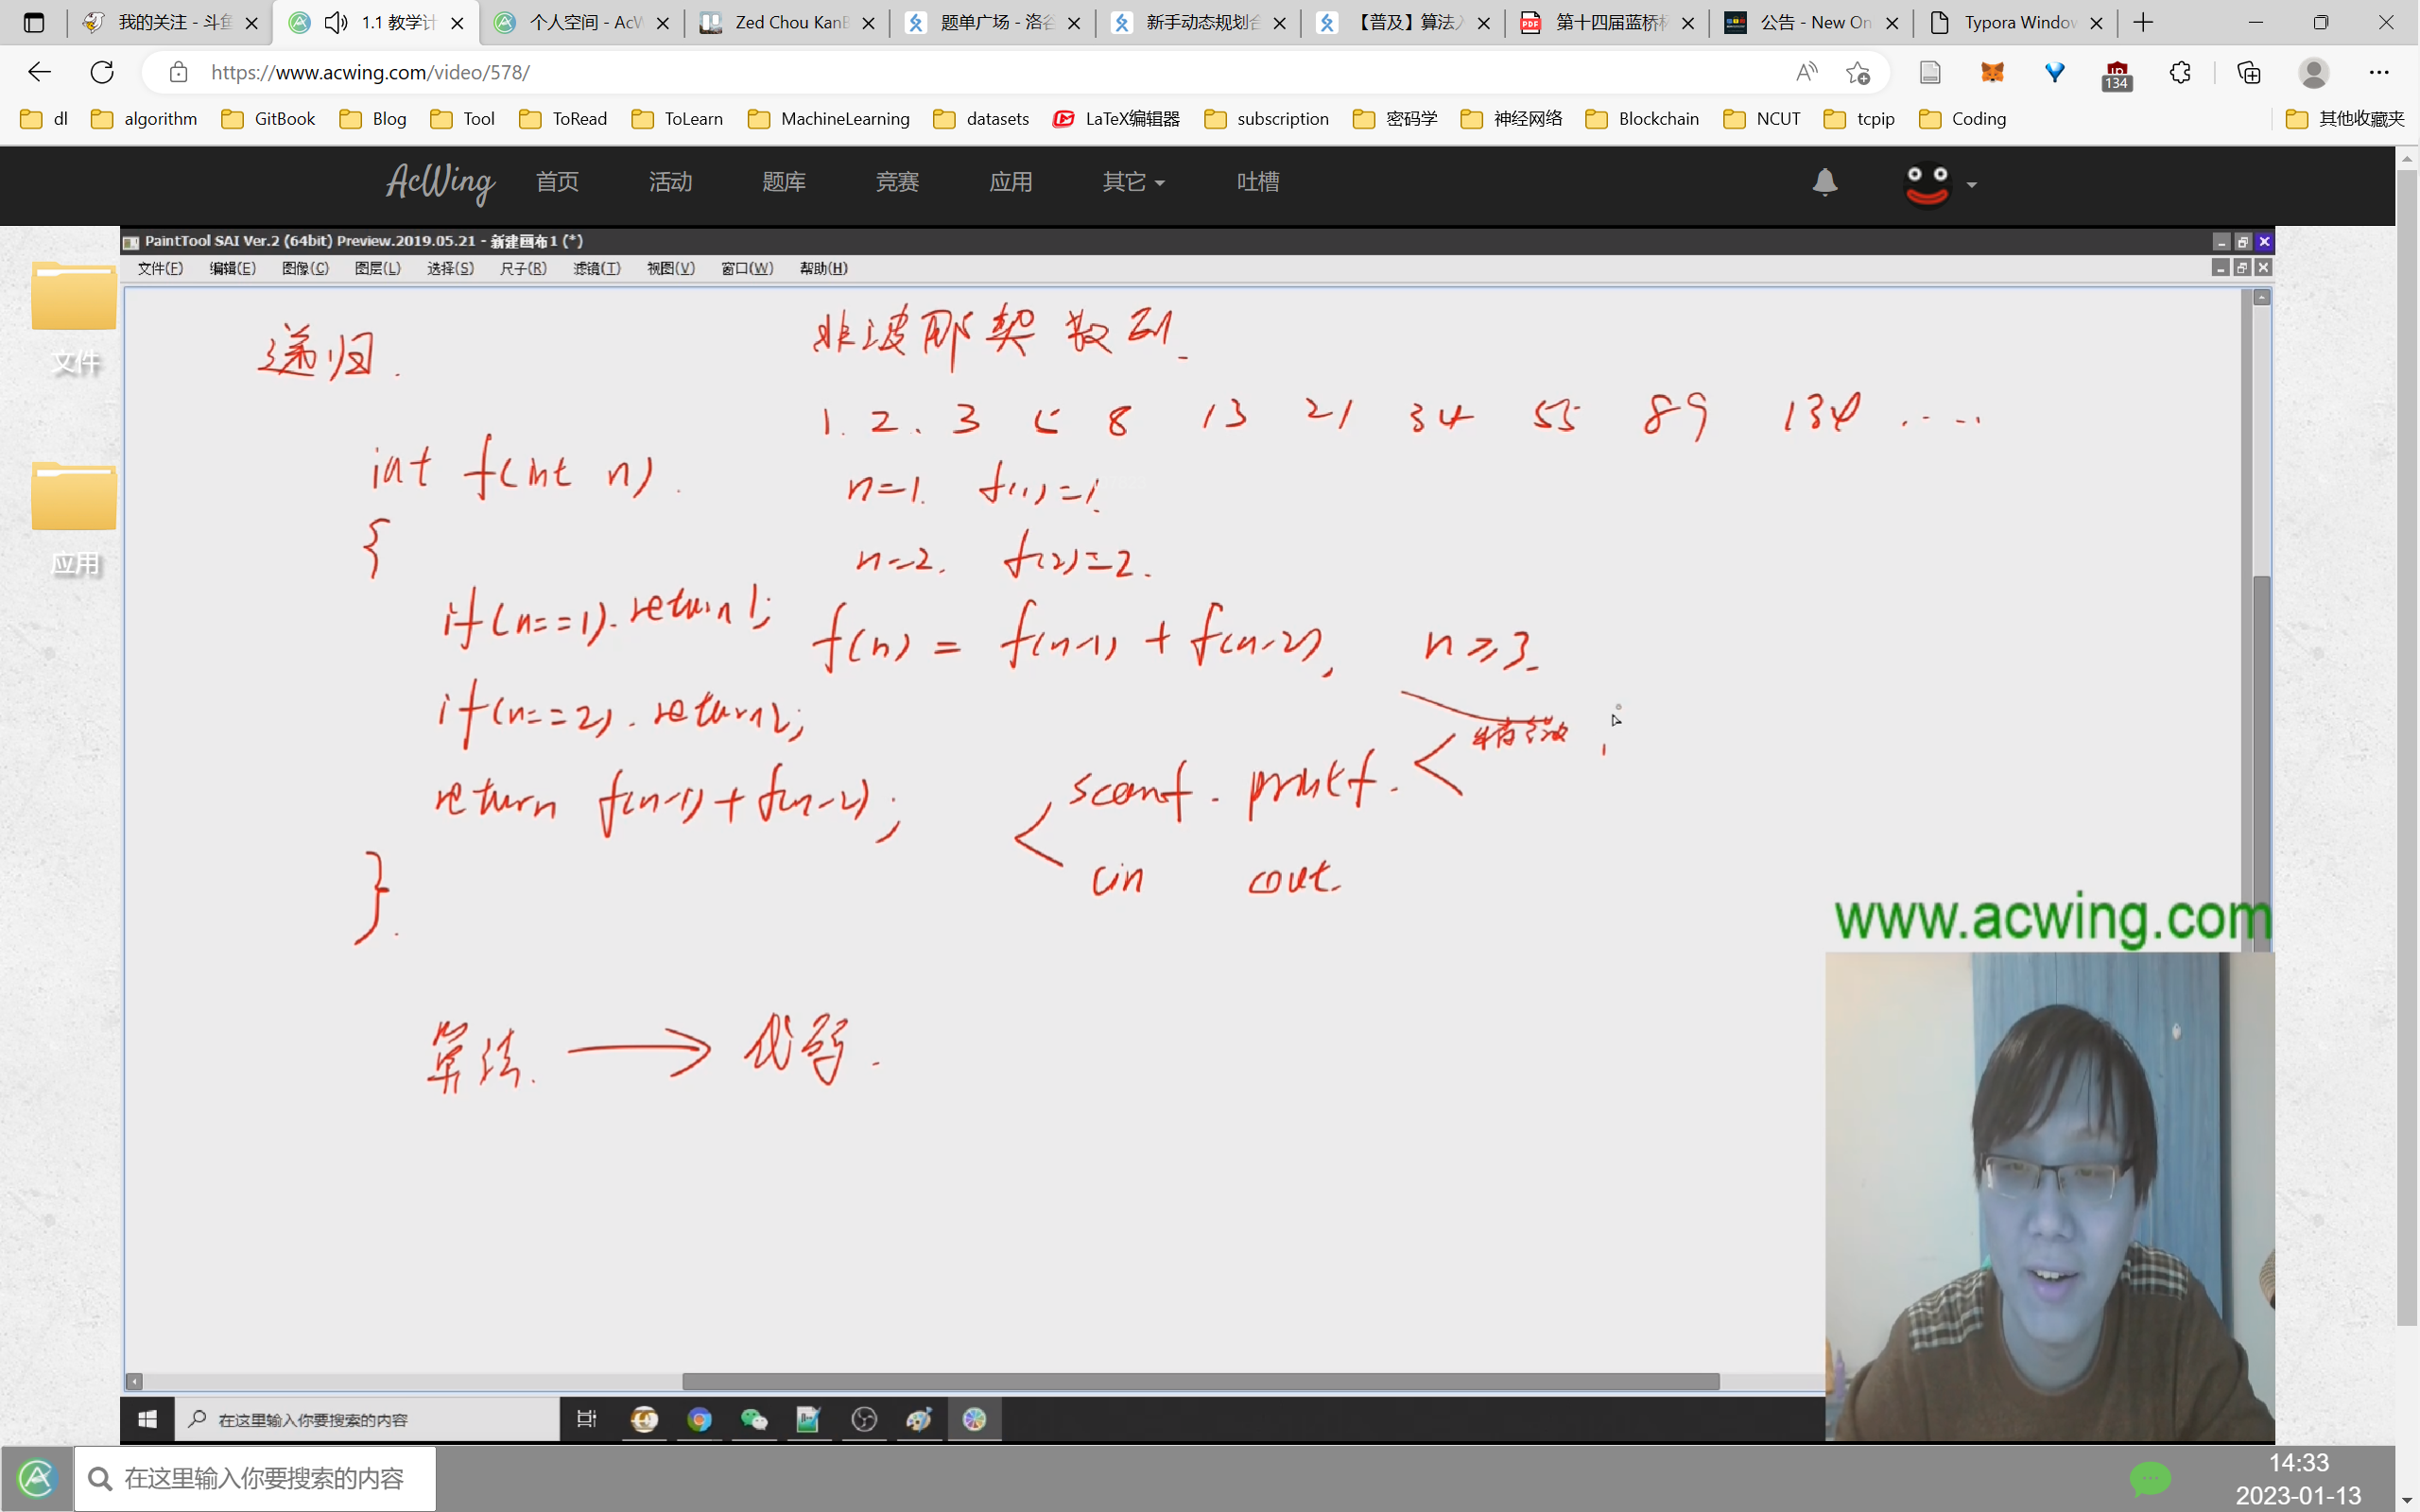 我的关注 - 斗鱼
1.1 教学计
个人空间 - AcW
Zed Chou KanB
题单广场 - 洛谷
新手动态规划合
【普及】算法入
第十四届蓝桥杯
公告 - New On
Typora Window
https://www.acwing.com/video/578/
134
dl algorithm GitBook Blog Tool ToRead ToLearn MachineLearning datasets LaTeX编辑器 subscription 密码学 神经网络 Blockchain NCUT tcpip Coding 其他收藏夹
AcWing 首页 活动 题库 竞赛 应用 其它 吐槽
PaintTool SAI Ver.2 (64bit) Preview.2019.05.21 - 新建画布1 (*)
文件(F) 编辑(E) 图像(C) 图层(L) 选择(S) 尺子(R) 滤镜(T) 视图(V) 窗口(W) 帮助(H)
文件
应用
递归.
斐波那契数列.
1. 2. 3 5 8 13 21 34 55 89 134 ....
int f(int n).
{
if(n==1). return 1;
if(n==2). return 2;
return f(n-1)+f(n-2);
}.
n=1. f(1)=1.
n=2. f(2)=2.
f(n) = f(n-1) + f(n-2), n≥3.
scanf. printf.
cin cout.
算法. → 代码.
www.acwing.com
在这里输入你要搜索的内容
在这里输入你要搜索的内容
14:33
2023-01-13